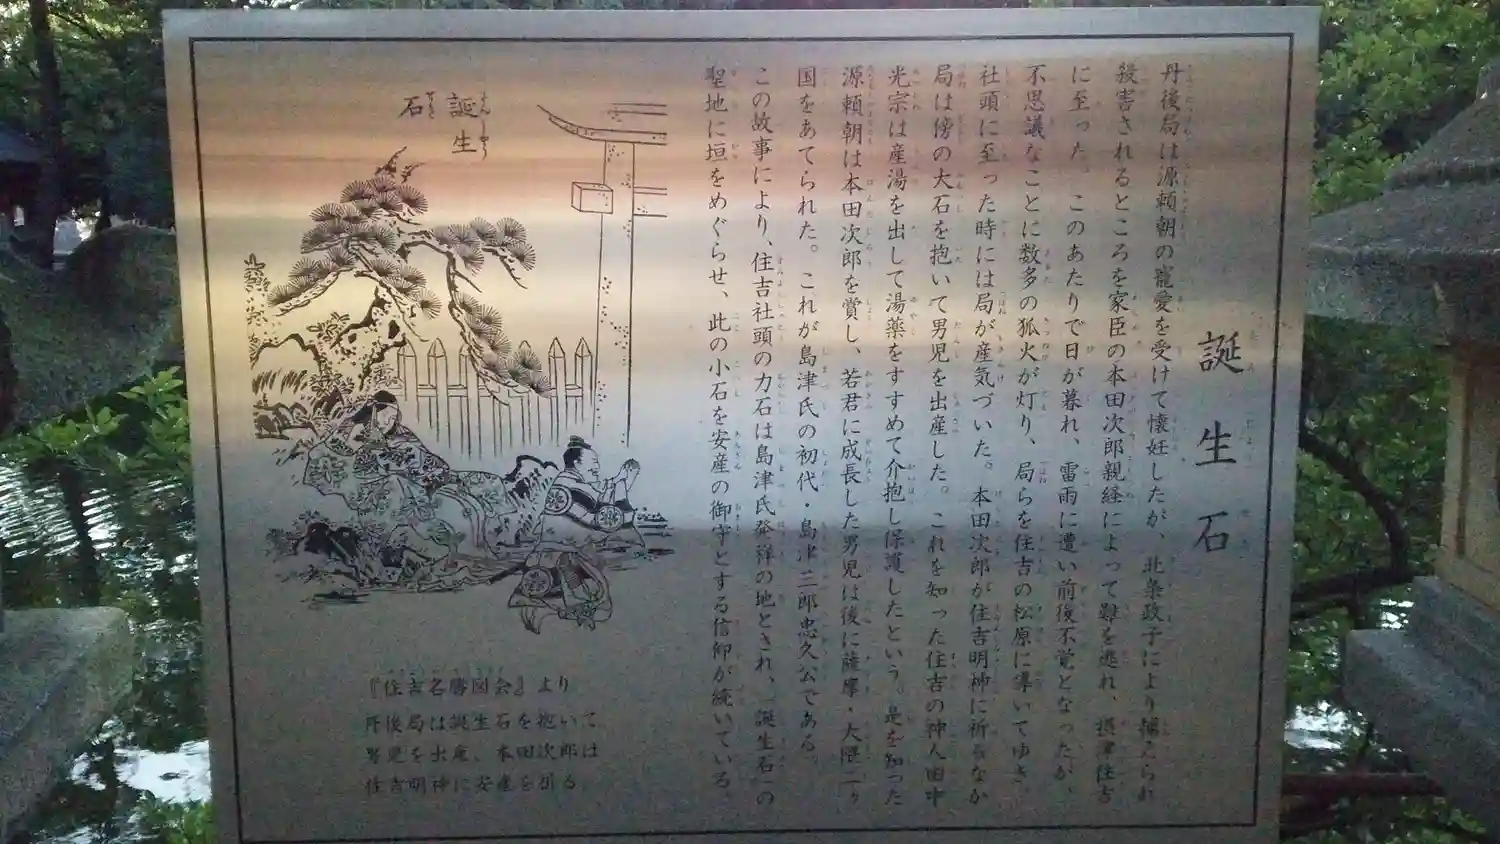 誕生石
丹後局は源頼朝の寵愛を受けて懐妊したが、北条政子により捕えられ
殺害されるところを家臣の本田次郎親経によって難を逃れ、摂津住吉
に至った。このあたりで日が暮れ、雷雨に遭い前後不覚となったが、
不思議なことに数多の狐火が灯り、局らを住吉の松原に導いてゆき、
社頭に至った時には局が産気づいた。本田次郎が住吉明神に祈るなか
局は傍の大石を抱いて男児を出産した。これを知った住吉の神人田中
光宗は産湯を出して湯薬をすすめて介抱し保護したという。是を知った
源頼朝は本田次郎を賞し、若君に成長した男児は後に薩摩・大隈二ヶ
国をあてられた。これが島津氏の初代・島津三郎忠久公である。
この故事により、住吉社頭の力石は島津氏発祥の地とされ、「誕生石」の
聖地に垣をめぐらせ、此の小石を安産の御守とする信仰が続いている。
誕生
石
『住吉名勝図会』より
丹後局は誕生石を抱いて
男児を出産、本田次郎は
住吉明神に安産を祈る。